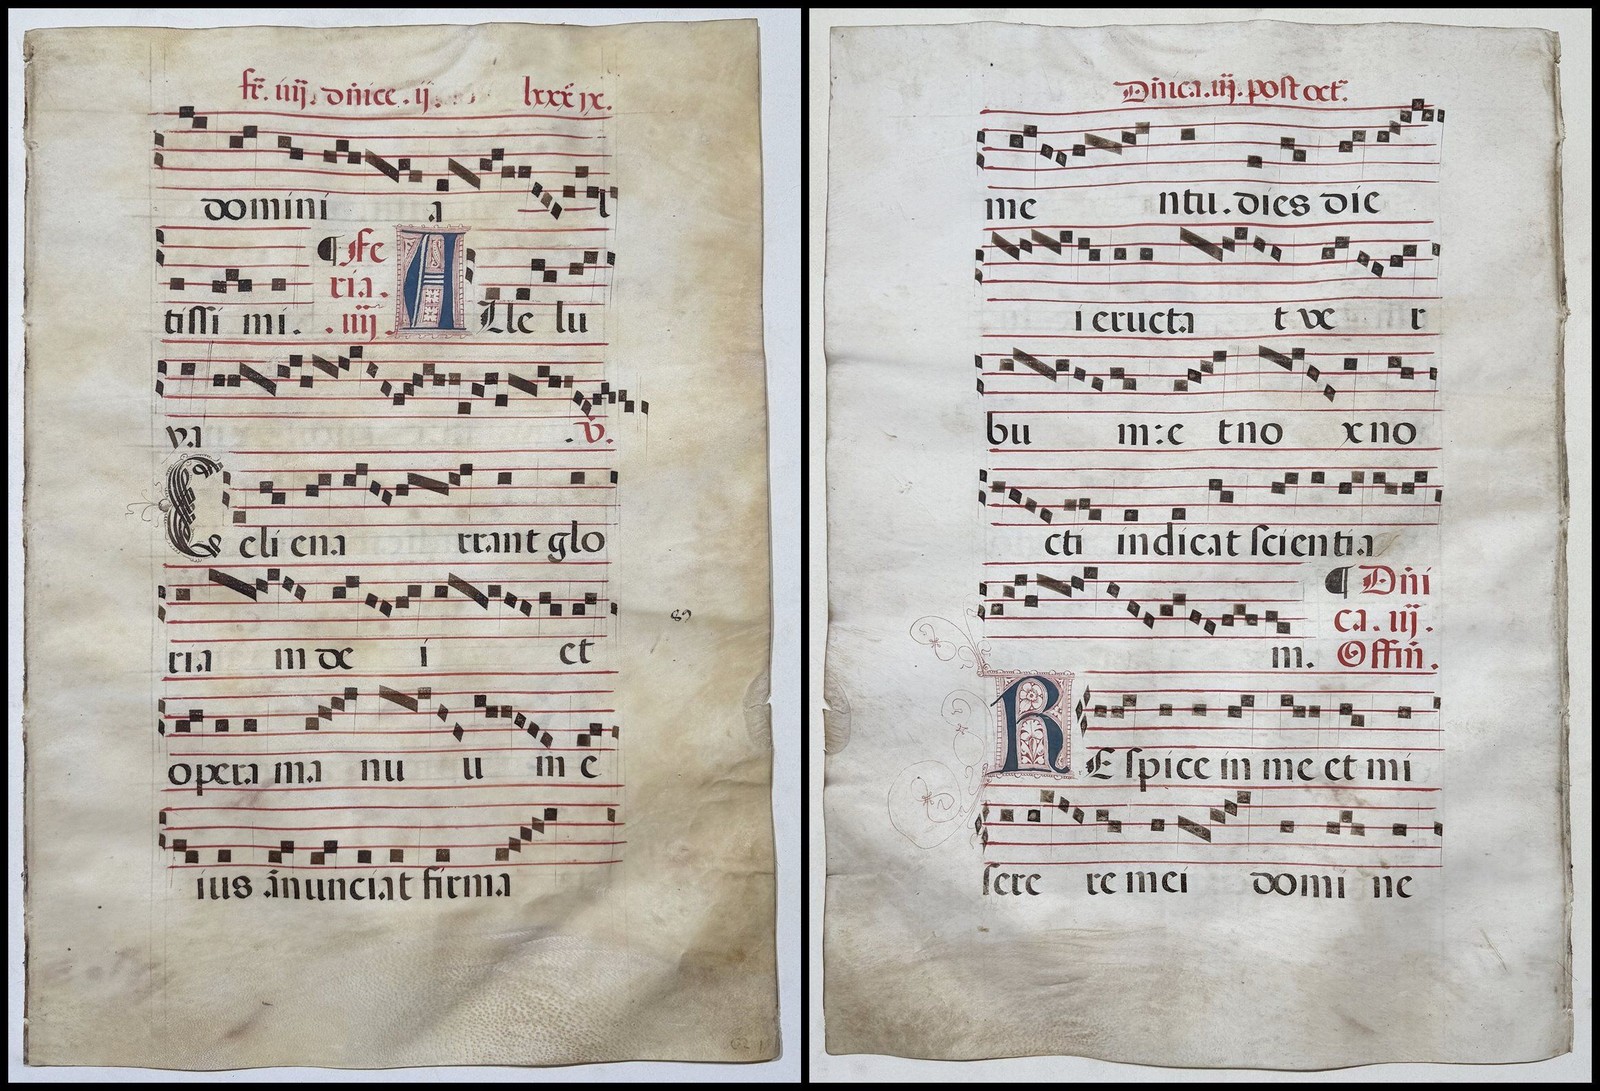 fr̄. iiij. dn̄ice. ij. lxxxix.
domini a l
tissi mi. ¶ fe
ria.
.iiij. A Lle lu
ya .v̄.
C eli ena rrant glo
ria m de i et
opera ma nu u m e
89
ius ānunciat firma
Dn̄ica.iij. post oct̄.
me ntu. dies die
i eructa t ve r
bu m:e tno xno
cti indicat scientia
¶ Dn̄i
ca. iij.
m. Offin̄.
R E spice in me et mi
sere re mei domi ne